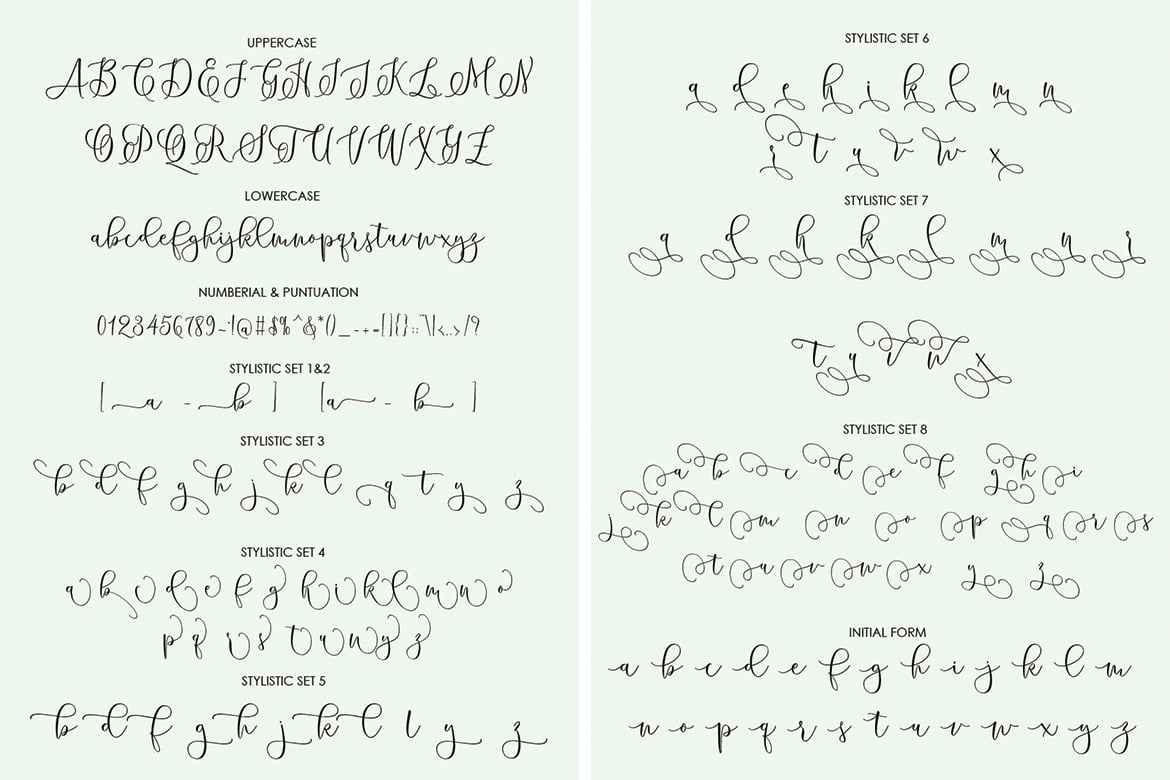 UPPERCASE
A B C D E F G H I J K L M N
O P Q R S T U V W X Y Z
LOWERCASE
abcdefghijklmnopqrstuvwxyz
NUMBERIAL & PUNTUATION
0123456789~!@#$%^&*()_-+=[]{}:;"\|<,.>/?
STYLISTIC SET 1&2
[ a - b ] [ a - b ]
STYLISTIC SET 3
b d f g h j k l q t y z
STYLISTIC SET 4
a b c d e f g h i k l m n o
p q r s t u v w y z
STYLISTIC SET 5
b d f g h j k l t y z
STYLISTIC SET 6
a d e h i k l m n
r t u v w x
STYLISTIC SET 7
a d h k l m n r
t u v w x
STYLISTIC SET 8
a b c d e f g h i
j k l m n o p q r s
t u v w x y z
INITIAL FORM
a b c d e f g h i j k l m
n o p q r s t u v w x y z